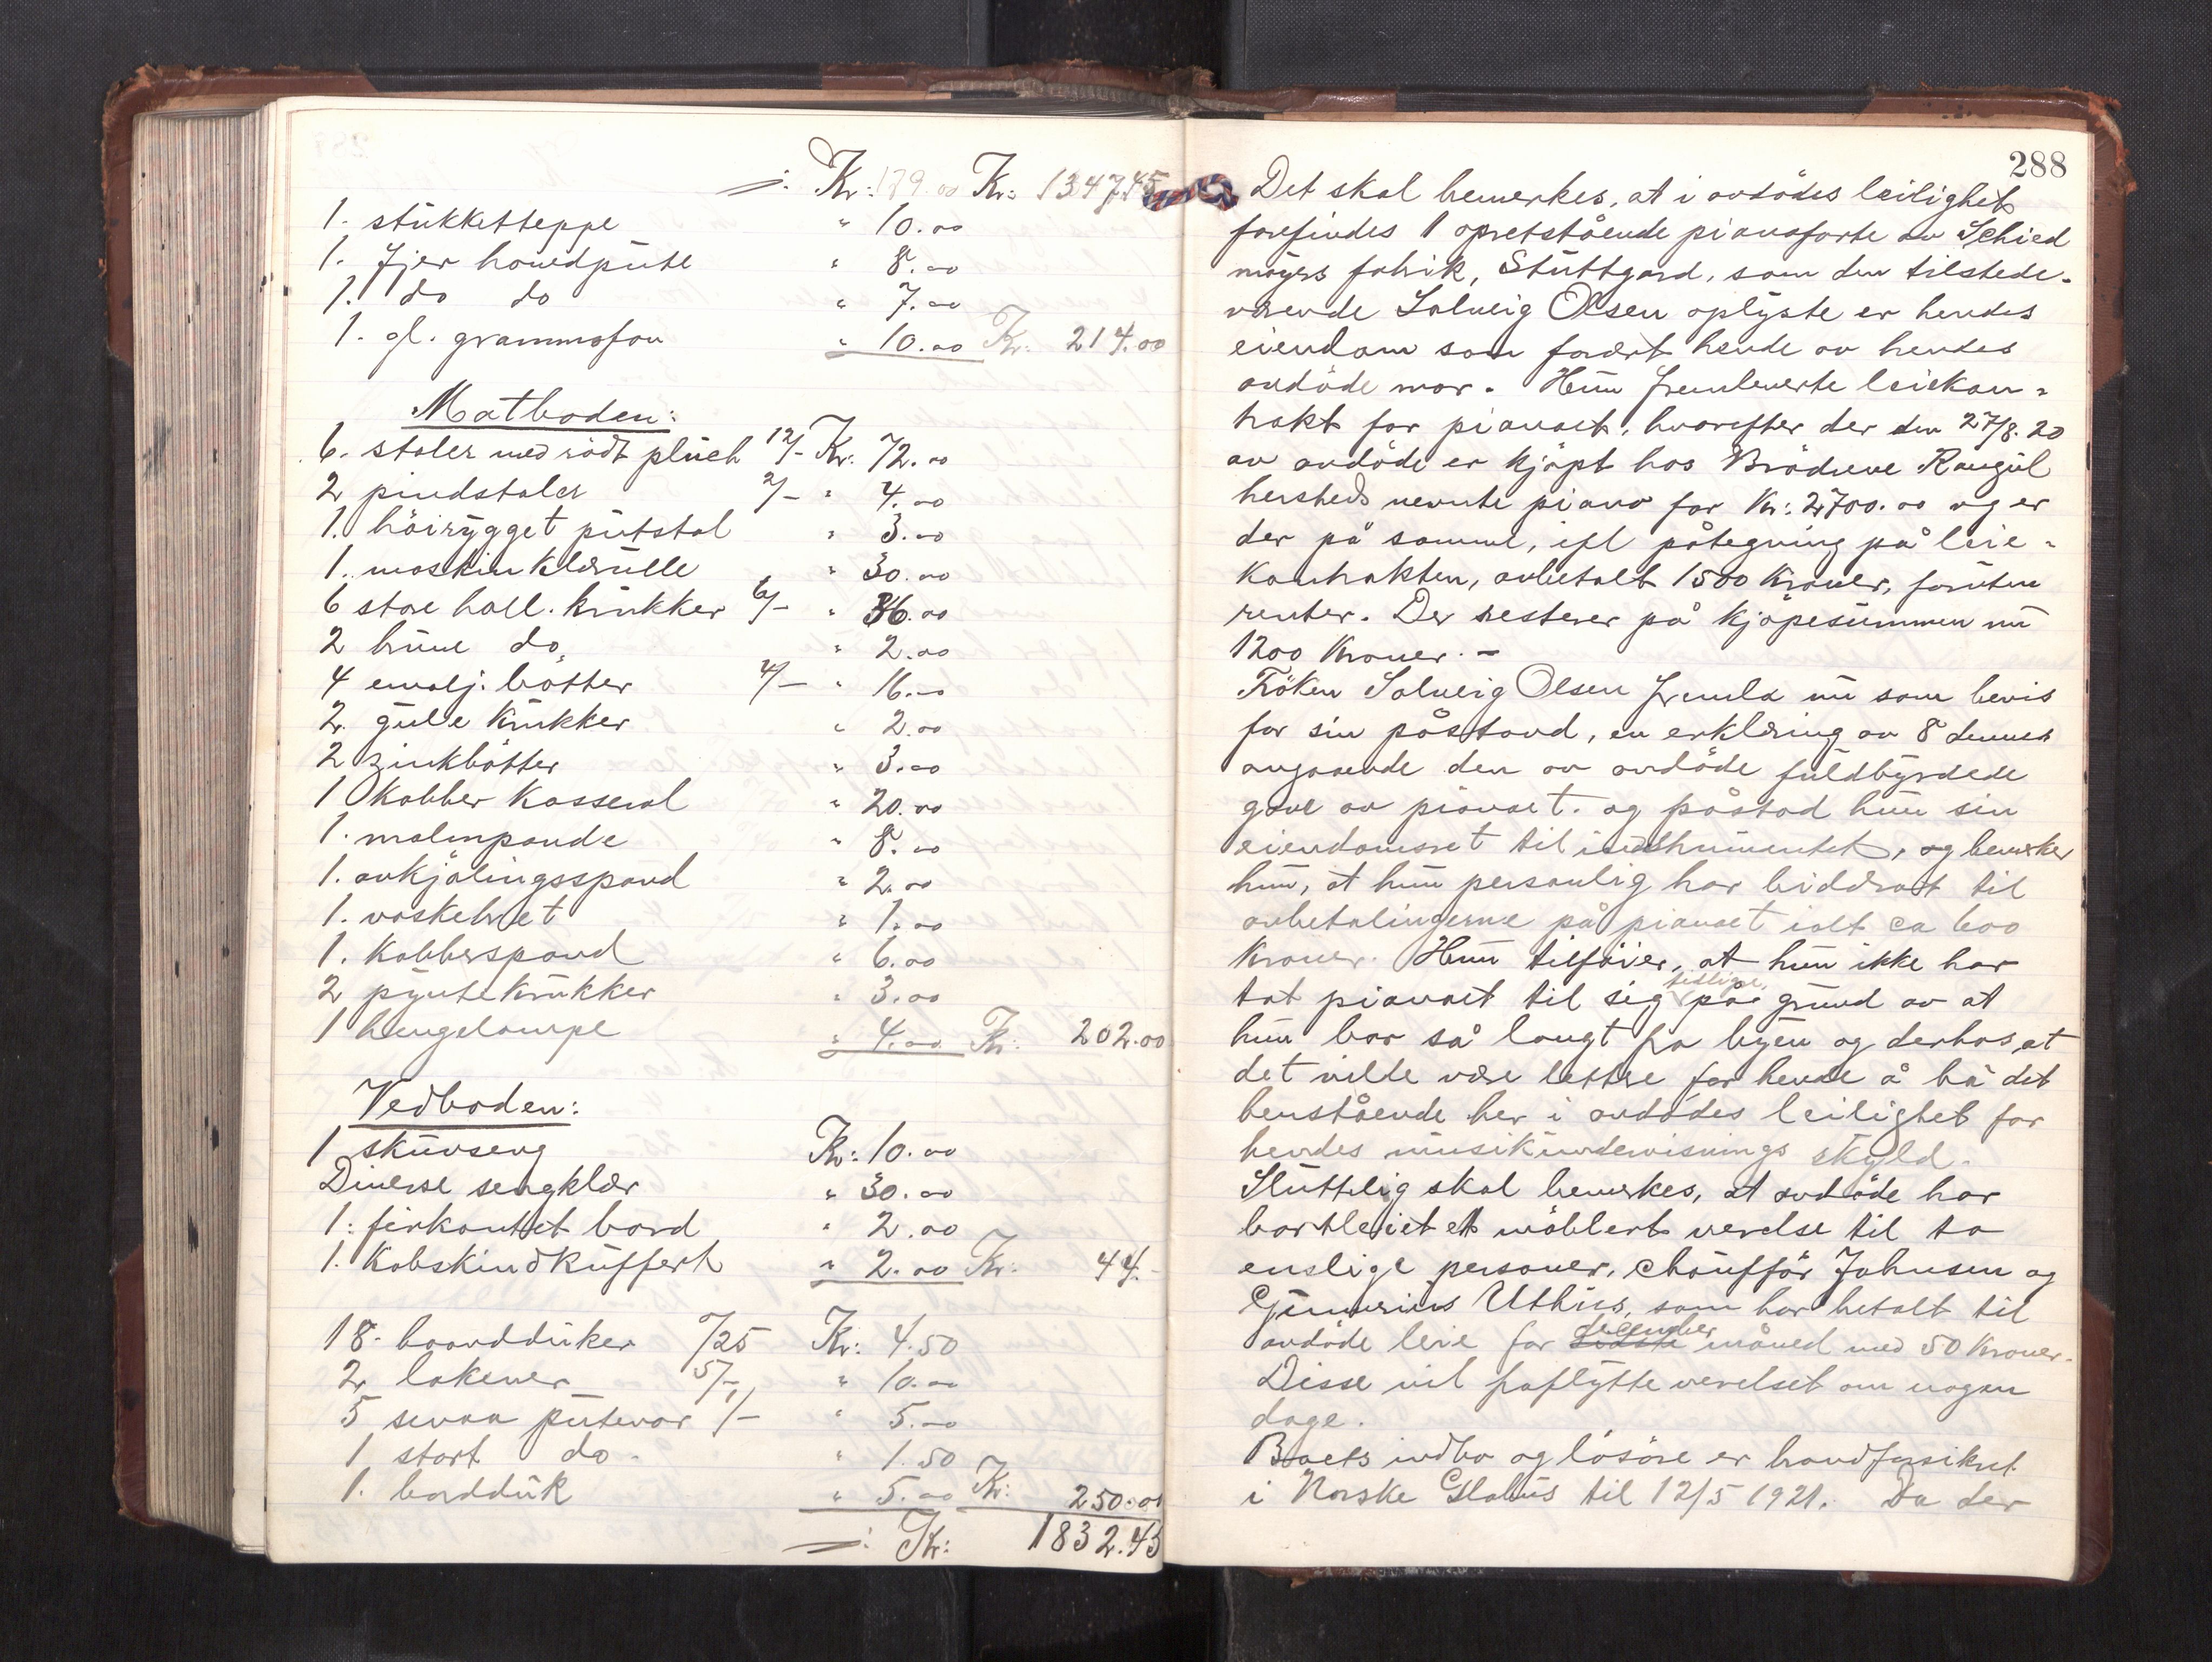 =: Kr: 179.00 Kr: 1347.45
1. stükketteppe " 10.00
1. Fjær hovedpüte " 8.00
1. do do " 7.00
1. gl. grammofon " 10.00 Kr: 214.00
Matboden:
6. stoler med rödt plüch 12/- Kr: 72.00
2 pindstoler 2/- " 4.00
1. höirygget pütstol " 3.00
1. maskin klærülle " 30.00
6 store holl. krükker 6/- " 36.00
2 brüne do, " 2.00
4 emalj. bøtter 4/- " 16.00
2. güle krükker " 2.00
2 zinkbøtter " 3.00
1 Kobber Kasserol " 20.00
1. malmpande " 8.00
1. avkjölingsspand " 2.00
1. vaskebret " 1.00
1. Kobberspand " 6.00
2 pyntekrükker " 3.00
1 hengelampe " 4.00 Kr: 202.00
Vedboden:
1 sküvseng Kr: 10.00
Diverse sengklær " 30.00
1. firkantet bord " 2.00
1. Kobskindküffert " 2.00 Kr: 44.-
18. boordduker /25 Kr: 4.50
2 lakener 5/- " 10.00
5 smaa pütevar 1/- " 5.00
1 stort do. " 1.50
1. borddük " 5.00 Kr: 250.00
=: Kr: 1832.45
288
Det skal bemerkes, at i avdödes leilighet
forefindes 1 opretstående pianoforte av Schied
mayers fabrik, Stuttgard, som den tilstede-
værende Solveig Olsen oplyste er hendes
eiendom som foræret hende av hendes
avdöde mor. Hun fremleverte leiekon-
trakt for pianoet, hvorefter der den 27/8. 20
av avdöde er kjöpt hos Brödrene Kangül
hersteds nevnte piano for Kr: 2700.00 og er
der på samme, ifl påtegning på leie-
kontrakten, avbetalt 1500 Kroner, foruten
renter. Der resterer på kjöpesümmen nü
1200 Kroner. -
Fröken Solveig Olsen fremla nü som bevis
for sin påstand, en erklæring av 8 dennes
angaaende den av avdöde füldbyrdede
gave av pianoet. og påstod hün sin
eiendomsret til indstrümentet, og bemerker
hün, at hün personlig har biddrat til
avbetalingerne på pianoet ialt ca 600
Kroner. Hün tilföier, at hün ikke har
tidligere
tat pianoet til sig på grund av at
hün bor så langt fra byen og derhos, at
det vilde være lettere for hende å ha det
henstående her i avdödes leilighet for
hendes musikündervisnings skyld.
Slüttelig skal bemerkes, at avdöde har
bortleiet et möblert verelse til to
enslige personer, chaufför Johnsen og
Günerius Uthus, som har betalt til
december
avdöde leie for sidste måned med 50 Kroner.
Disse vil fraflytte verelset om nogen
dage.
Boets indbo og lösöre er brandforsikret
i Norske Globus til 12/5 1921. Da der